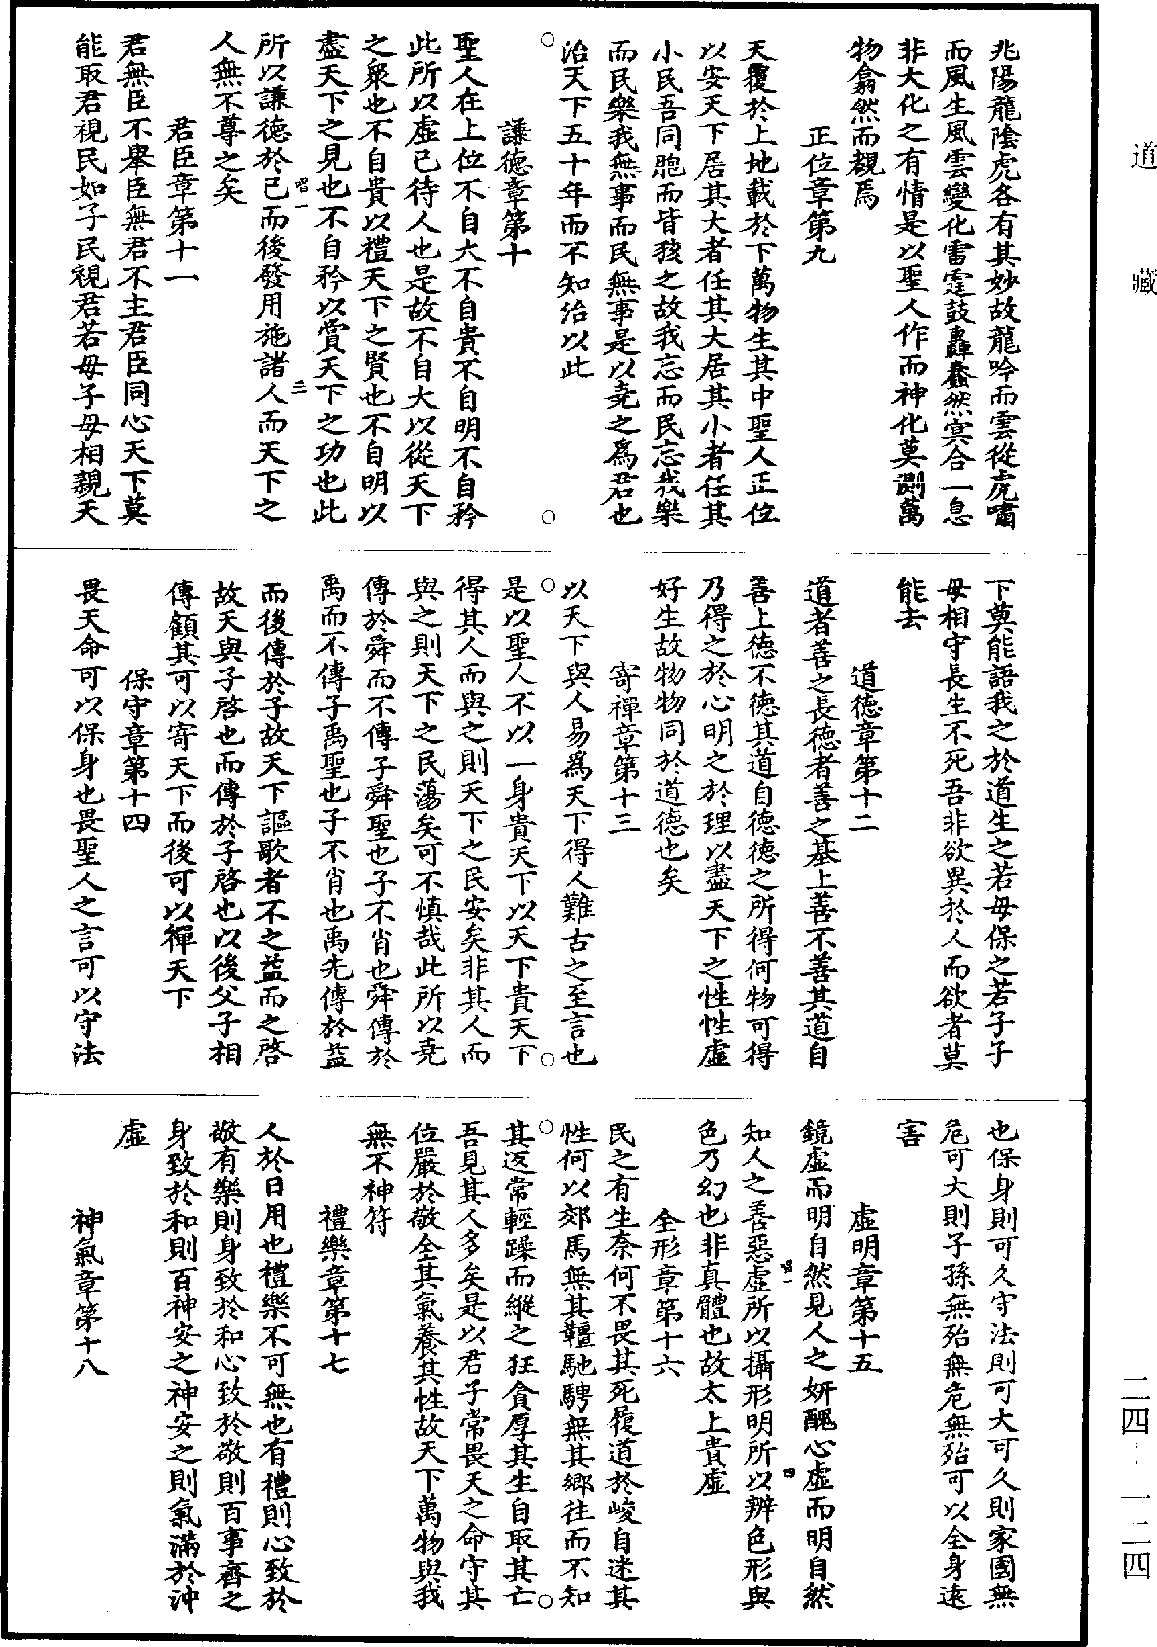 道藏
兆陽龍陰虎各有其妙故龍吟而雲從虎嘯
而風生風雲變化雷霆鼓轟驀然寞合一息
非大化之有情是以聖人作而神化莫測萬
物翕然而覩焉
正位章第九
天覆於上地載於下萬物生其中聖人正位
以安天下居其大者任其大居其小者任其
小民吾同胞而皆孩之故我忘而民忘我樂
而民樂我無事而民無事是以堯之爲君也
治天下五十年而不知治以此
謙德章第十
聖人在上位不自大不自貴不自明不自矜
此所以虛己待人也是故不自大以從天下
之衆也不自貴以禮天下之賢也不自明以
盡天下之見也不自矜以賞天下之功也此
唱一
三
所以謙德於己而後發用施諸人而天下之
人無不尊之矣
君臣章第十一
君無臣不舉臣無君不主君臣同心天下莫
能取君視民如子民視君若母子母相親天
下莫能語我之於道生之若母保之若子子
母相守長生不死吾非欲異於人而欲者莫
能去
道德章第十二
道者善之長德者善之基上善不善其道自
善上德不德其道自德德之所得何物可得
乃得之於心明之於理以盡天下之性性虛
好生故物物同於道德也矣
寄禪章第十三
以天下與人易爲天下得人難古之至言也
是以聖人不以一身貴天下以天下貴天下
得其人而與之則天下之民安矣非其人而
與之則天下之民蕩矣可不慎哉此所以堯
傳於舜而不傳子舜聖也子不肖也舜傳於
禹而不傳子禹聖也子不肖也禹先傳於益
而後傳於子故天下謳歌者不之益而之啓
故天與子啓也而傳於子啓也以後父子相
傳顧其可以寄天下而後可以禪天下
保守章第十四
畏天命可以保身也畏聖人之言可以守法
也保身則可久守法則可大可久則家國無
危可大則子孫無殆無危無殆可以全身遠
害
虛明章第十五
鏡虛而明自然見人之妍醜心虛而明自然
唱一
四
知人之善惡虛所以攝形明所以辨色形與
色乃幻也非真體也故太上貴虛
全形章第十六
民之有生奈何不畏其死履道於峻自迷其
性何以郊馬無其韁馳騁無其鄉往而不知
其返常輕躁而縱之狂貪厚其生自取其亡
吾見其人多矣是以君子常畏天之命守其
位嚴於敬全其氣養其性故天下萬物與我
無不神符
禮樂章第十七
人於日用也禮樂不可無也有禮則心致於
敬有樂則身致於和心致於敬則百事齊之
身致於和則百神安之神安之則氣滿於沖
虛
神氣章第十八
二四·一二四